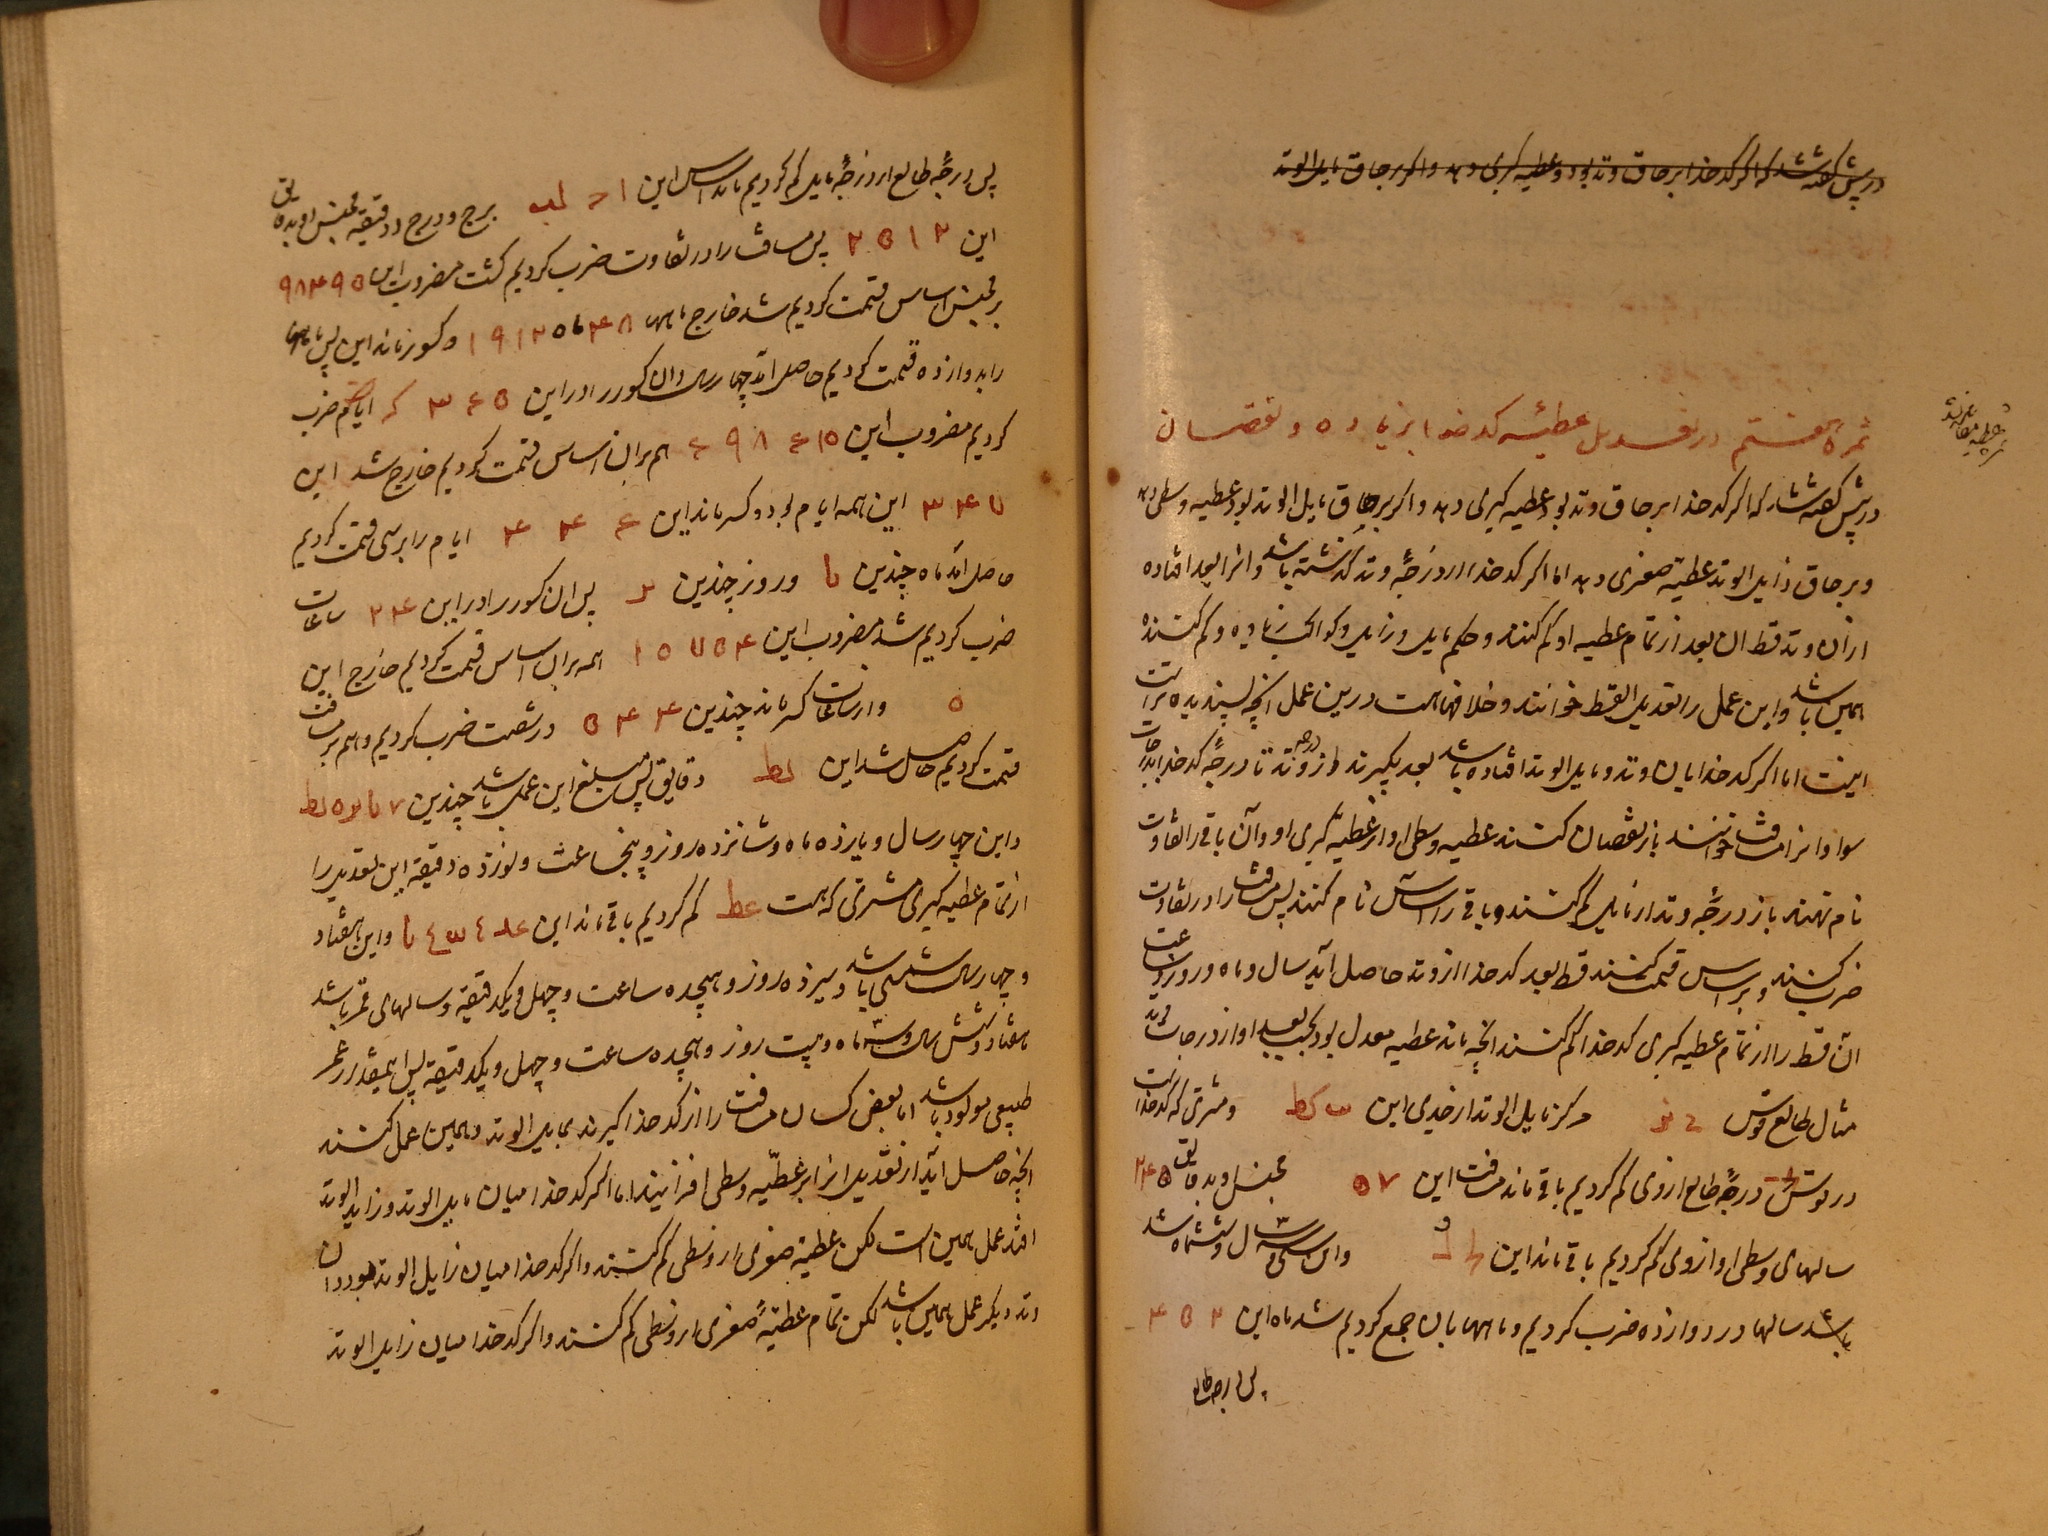 در پیش گفته شد که اگر کدخدا بر حاق وتد بود عطیه کبری دهد و اگر بر حاق مایل الوتد
ثمره هفتم در تعدیل عطیّه کدخدا بزیاده و نقصان
در پیش گفته شد که اگر کدخدا بر حاق وتد بود عطیه کبری دهد و اگر بر حاق مایل الوتد بود عطیه وسطی دهد
و بر حاق زایل الوتد عطیهٔ صغری دهد اما اگر کدخدا از درجهٔ وتد گذشته باشد و انرا بعد افتاده
ازان وتد قسط ان بعد از تمام عطیه او کم کنند و حکم مایل و زایل و کواکب زیاده و کم کننده
همین باشد و این عمل را تعدیل القسط خوانند و خلافهاست درین عمل انچه پسندیده تر است
اینست اما اگر کدخدا میان وتد و مایل الوتد افتاده باشد بعد بگیرند از درجه وتد تا درجهٔ کدخدا بدرجات
سوا و انرا مسافت خوانند باز نقصان کنند عطیه وسطی او از عطیهٔ کبری او و آن باقی را تفاوت
نام نهند باز درجهٔ وتد از مایل کم کنند و باقی را اساس نام کنند پس مسافت را در تفاوت
ضرب کنند و بر اساس قسمت کنند قسط بعد کدخدا از وتد حاصل آید سال و ماه و روز و ساعت
ان قسط را از تمام عطیه کبری کدخدا کم کنند انچه ماند عطیه معدل بود بحسب بعد او از درجات وتد
مثال طالع قوس مرکز مایل الوتد از جدی این و مشتری که کدخداست
در قوس درجهٔ طالع ازوی کم کردیم باقی ماند مسافت این ۷ ۵ مجنس او بدقایق ۴۲۵
سالهای وسطی او ازوی کم کردیم باقی ماند این و این سی و سه سال و ششماه باشد
باشد سالها در دوازده ضرب کردیم و ماهها بان جمع کردیم شد ماه این ۴۵۲
پس درجه طالع
پس درجهٔ طالع از درجهٔ مایل کم کردیم ماند اساس این برج و درج و دقیقه مجنس او بدقایق
این ۲ ۱ ۵ ۲ پس مسافت را در تفاوت ضرب کردیم گشت مضروب این ۹۸۴۹۵
بر مجنس اساس قسمت کردیم شد خارج ماهها و کسور ماند این پس ماهها
را بدوازده قسمت کردیم حاصل آمد چهار سال و ان کسور را در این ۳۶۵ ایام ضرب
کردیم مضروب این هم بر ان اساس قسمت کردیم خارج شد این
۳۴۷ این همه ایام بود و کسر ماند این ۴ ۴ ۶ ایام را بر سی قسمت کردیم
حاصل آمد ماه چندین یا و روز چندین پس ان کسور را در این ۲۴ ساعات
ضرب کردیم شد مضروب این ۱۵۷۵۴ همه بر ان اساس قسمت کردیم خارج این
۵ و از ساعات کسر ماند چندین ۵۴۴ در شصت ضرب کردیم و هم بر مسافت
قسمت کردیم حاصل شد این یط دقایق پس مبلغ این عمل باشد چندین
و این چهار سال و یازده ماه و شانزده روز و پنج ساعت و نوزده دقیقه این تعدیل را
از تمام عطیه کبری مشتری که هست عط کم کردیم باقی ماند این و این هفتاد
و چهار سال شمسی باشد و سیزده روز و هیجده ساعت و چهل و یک دقیقه و سالهای قمر باشد
هفتاد و شش سال و سه ماه و بیست روز و هیجده ساعت و چهل و یک دقیقه پس اینقدر عمر
طبیعی مولود باشد اما بعضی کسان مسافت را از کدخدا گیرند بمایل الوتد و همین عمل کنند
انچه حاصل آید از تعدیل انرا بر عطیّه وسطی افزایند اما اگر کدخدا میان مایل الوتد و زایل الوتد
افتد عمل همین است لکن عطیهٔ صغری از وسطی کم کنند و اگر کدخدا میان زایل الوتد بود و ان
وتد دیگر عمل همین باشد لکن تمام عطیّهٔ صغری از وسطی کم کنند و اگر کدخدا میان زایل الوتد